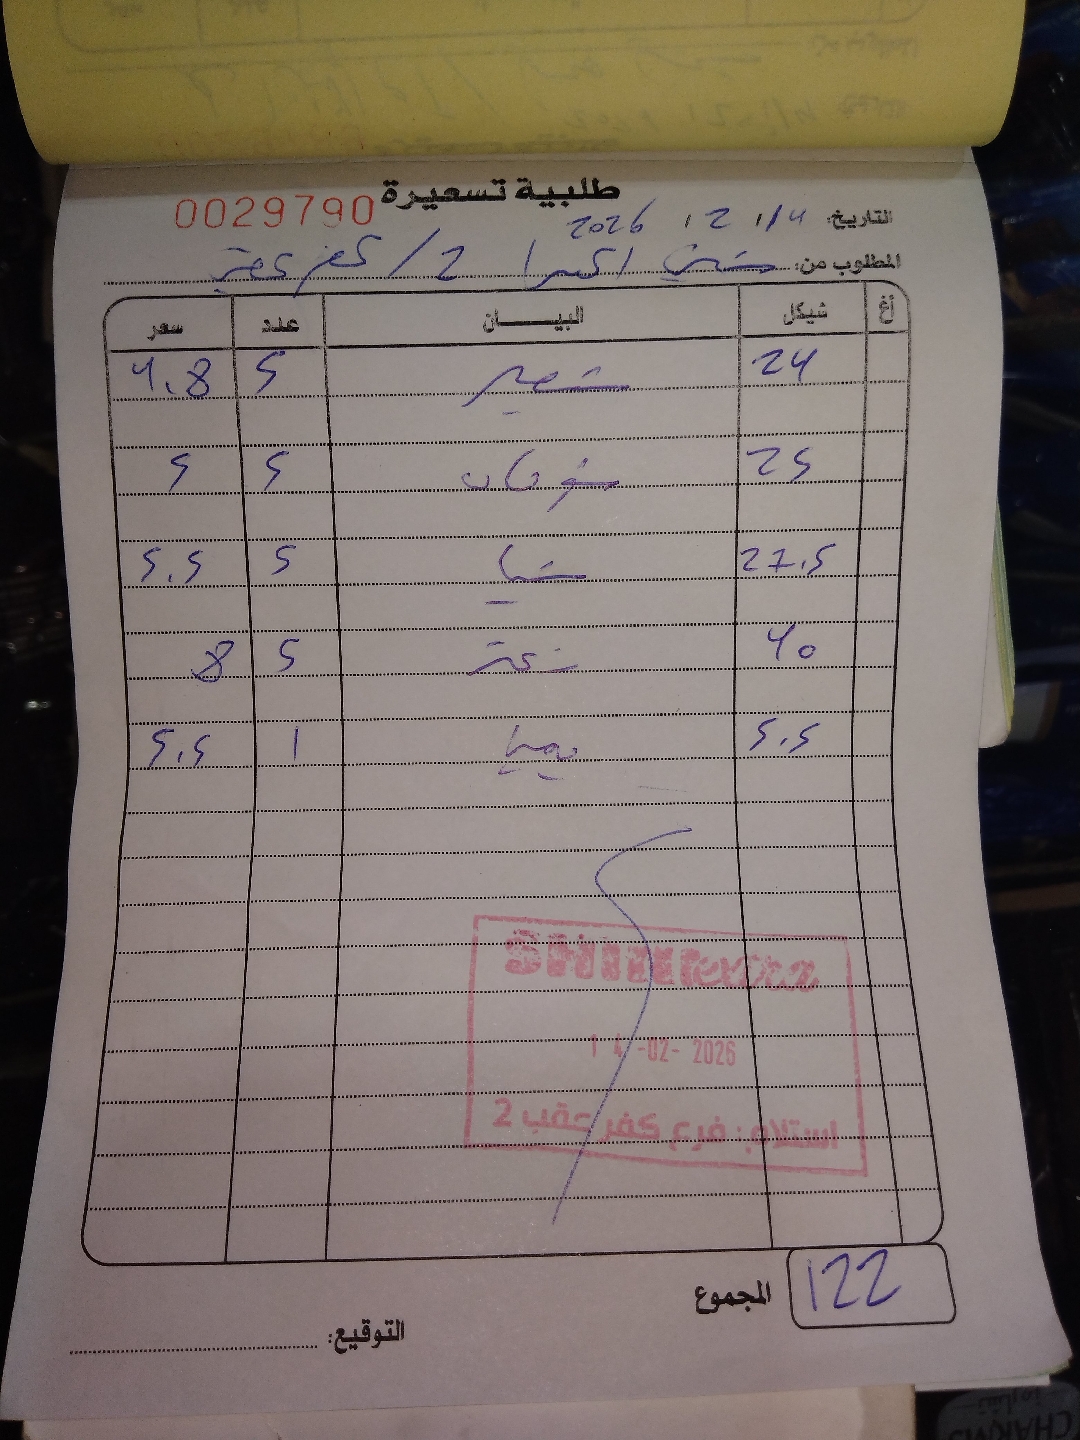 طلبية تسعيرة
0029790
التاريخ: 14 / 2 / 2026
المطلوب من: 2 /
أغ شيكل البيـــــان عدد سعر
24 شعير 5 4.8
25 شوفان 5 5
27.5 شيا 5 5.5
40 زعتر 5 8
5.5 1 5.5
14 -02- 2026
استلام: فرع كفر عقب 2
المجموع 122
التوقيع:
CHARMS